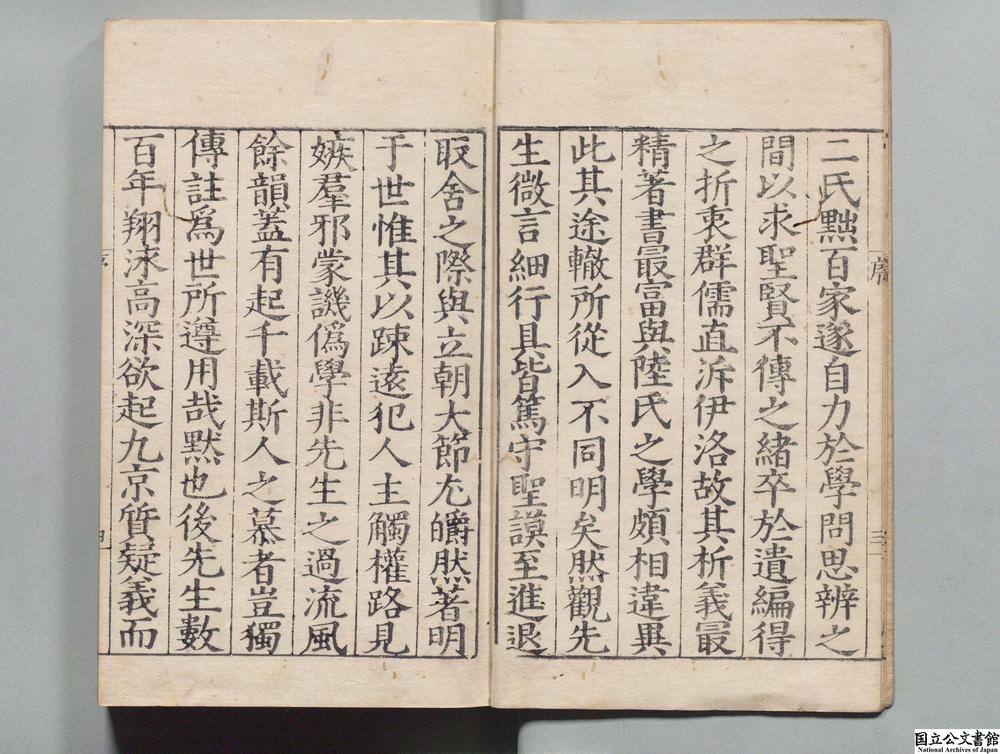 二氏黜百家遂自力於學問思辨之
間以求聖賢不傳之緒卒於遺編得
之折衷群儒直泝伊洛故其析義最
精著書最富與陸氏之學頗相違異
此其途轍所從入不同明矣然觀先
生微言細行具皆篤守聖謨至進退
序
三
取舍之際與立朝大節尤皭然著明
于世惟其以踈遠犯人主觸權路見
嫉羣邪蒙譏僞學非先生之過流風
餘韻蓋有起千載斯人之慕者豈獨
傳註爲世所遵用哉黙也後先生數
百年翔泳高深欲起九京質疑義而
国立公文書館
National Archives of Japan